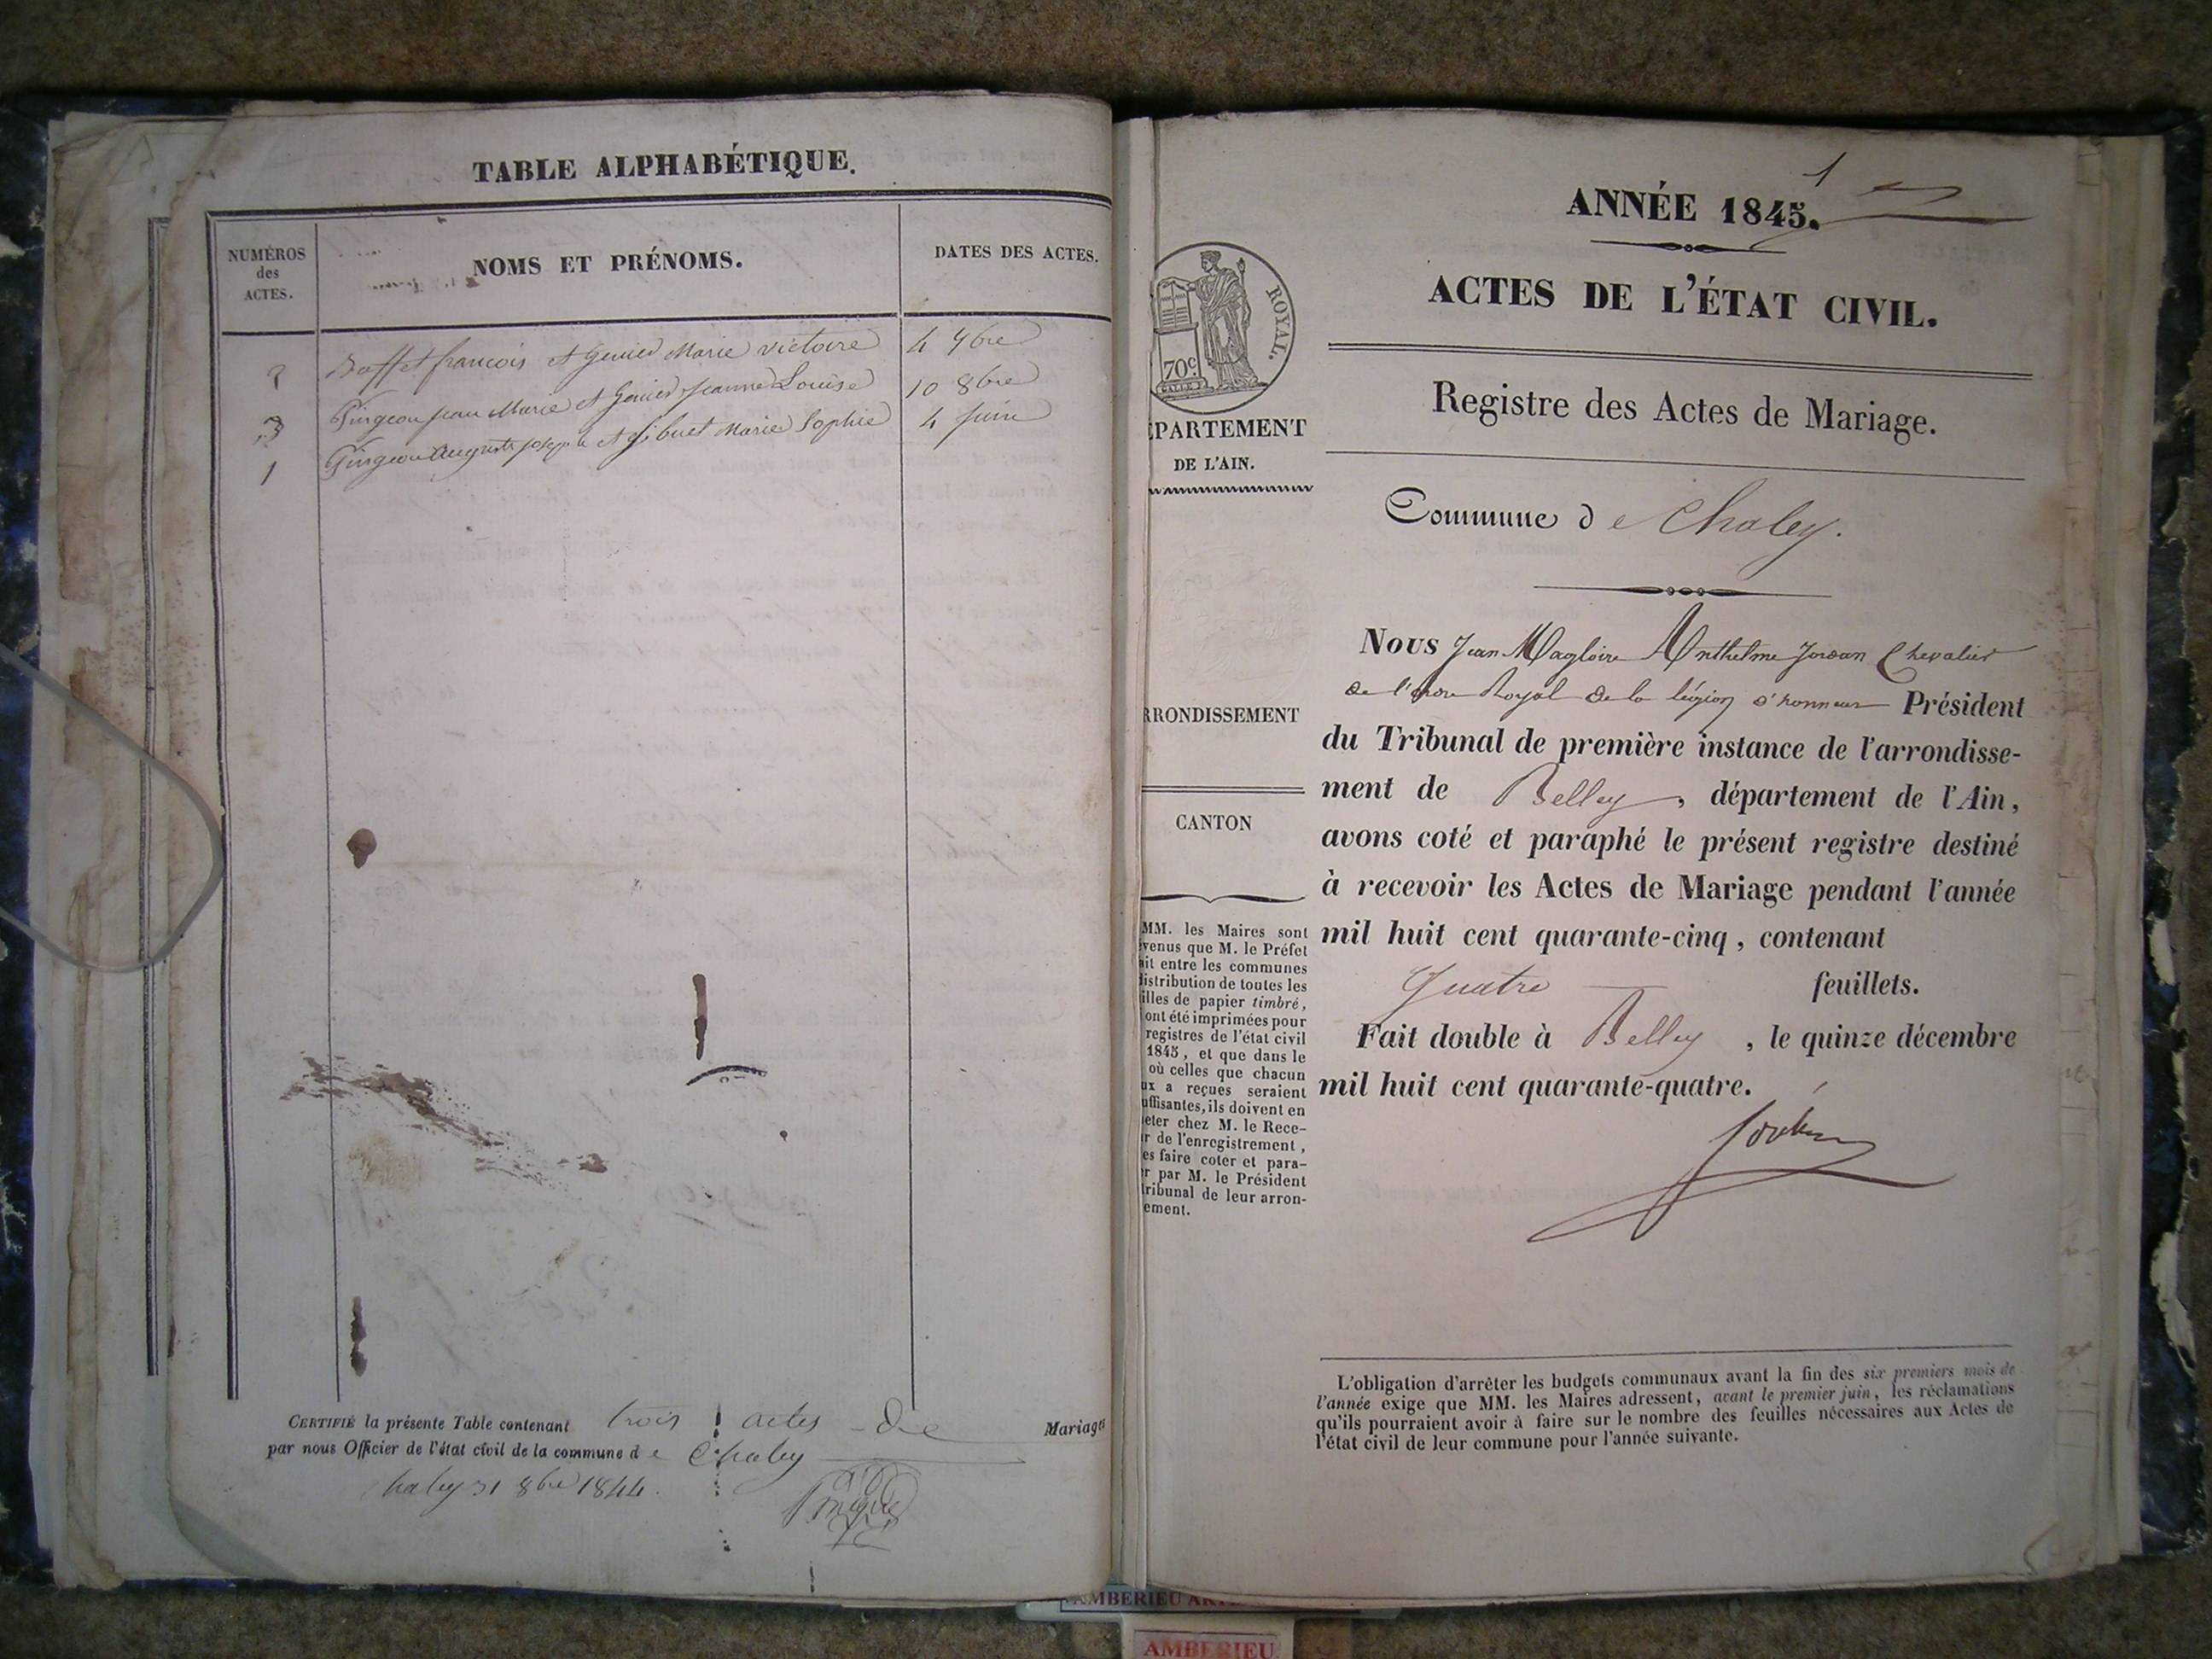 TABLE ALPHABÉTIQUE.
NUMÉROS
des
ACTES.
NOMS ET PRÉNOMS.
DATES DES ACTES.
2 Buffet francois et Genier Marie victoire 4 7bre
3 Pingeon jean Marie et Genier Jeanne Louise 10 8bre
1 Pingeon auguste joseph et gibuet Marie Sophie 4 juin
CERTIFIÉ la présente Table contenant trois actes de Mariages
par nous Officier de l'état civil de la commune de Chaley
haley 31 8bre 1844.
1
ANNÉE 1845.
ACTES DE L'ÉTAT CIVIL.
Registre des Actes de Mariage.
Commune de Chaley.
Nous Jean Magloire Anthelme Jordan Chevalier
de l'ordre Royal de la légion d'honneur Président
du Tribunal de première instance de l'arrondisse-
ment de Belley, département de l'Ain,
avons coté et paraphé le présent registre destiné
à recevoir les Actes de Mariage pendant l'année
mil huit cent quarante-cinq, contenant
Quatre feuillets.
Fait double à Belley, le quinze décembre
mil huit cent quarante-quatre.
Jordan
L'obligation d'arrêter les budgets communaux avant la fin des six premiers mois de
l'année exige que MM. les Maires adressent, avant le premier juin, les réclamations
qu'ils pourraient avoir à faire sur le nombre des feuilles nécessaires aux Actes de
l'état civil de leur commune pour l'année suivante.
ROYAL.
70c.
ÉPARTEMENT
DE L'AIN.
RRONDISSEMENT
CANTON
MM. les Maires sont
venus que M. le Préfet
ait entre les communes
distribution de toutes les
illes de papier timbré,
ont été imprimées pour
registres de l'état civil
1845, et que dans le
où celles que chacun
ux a reçues seraient
uffisantes, ils doivent en
eter chez M. le Rece-
r de l'enregistrement,
es faire coter et para-
r par M. le Président
tribunal de leur arron-
ement.
AMBERIEU
AMBERIEU